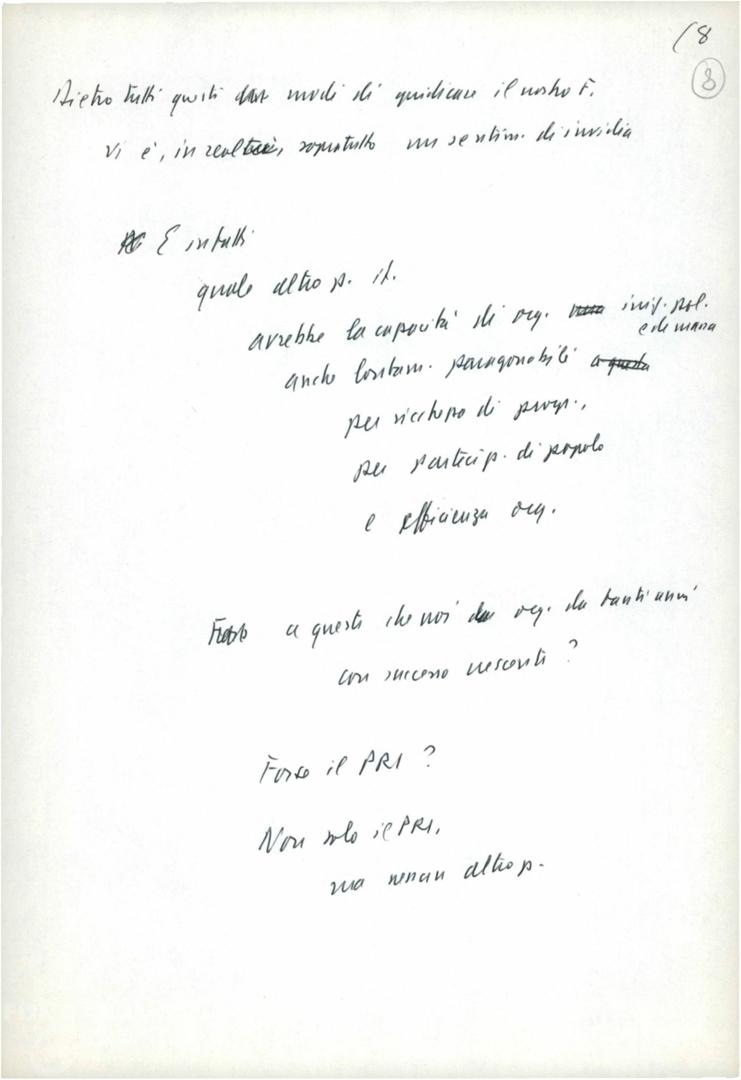 /8
8
Dietro tutti questi modi di giudicare il nostro F.
vi è, in realtà, sopratutto un sentim. di invidia
E infatti
quale altro p. it.
avrebbe la capacità di org. iniz. pol.
e di massa
anche lontam. paragonabili
per ricchezza di progr.,
per partecip. di popolo
e efficienza org.
a queste che noi org. da tanti anni
con successo crescente?
Forse il PRI?
Non solo il PRI,
ma nessun altro p.